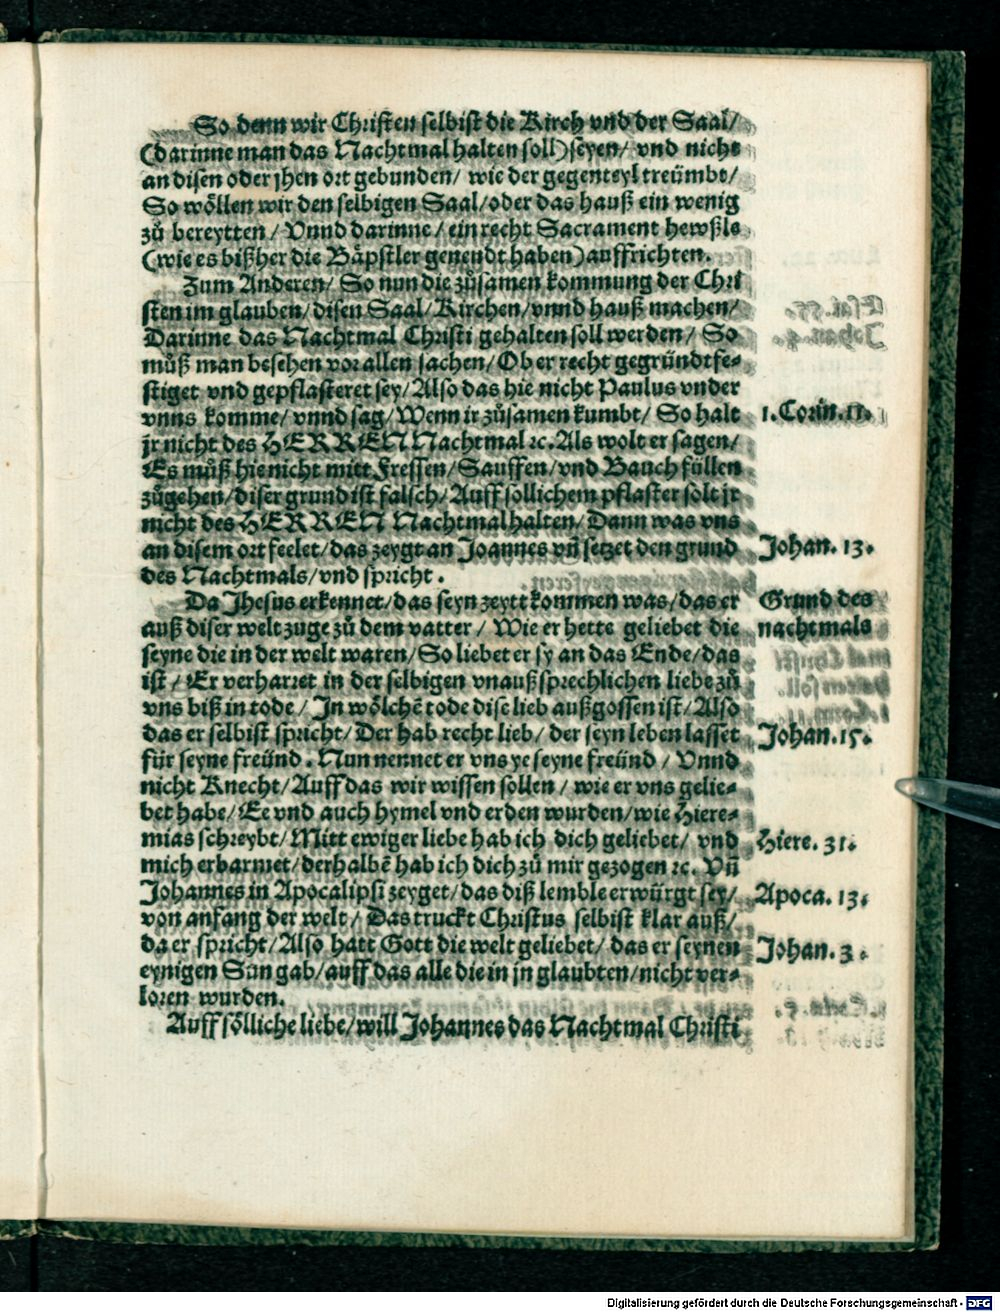 So denn wir Christen selbist die Kirch vnd der Saal/
(darinne man das Nachtmal halten soll) seyen/ vnd nicht
an disen oder jhen ort gebunden/ wie der gegenteyl treümbt/
So wöllen wir den selbigen Saal/oder das hauß ein wenig
zů bereytten/ Vnnd darinne/ ein recht Sacrament hewßle
(wie es bißher die Bäpstler genendt haben) auffrichten.
Zum Anderen/ So nun die zůsamen kommung der Chri
sten im glauben/ disen Saal/ Kirchen/ vnnd hauß machen/
Darinne das Nachtmal Christi gehalten soll werden/ So
můß man besehen vor allen sachen/ Ob er recht gegründt fe-
stiget vnd gepflasteret sey/ Also das hie nicht Paulus vnder
vnns komme/ vnnd sag/ Wenn ir zůsamen kumbt/ So halt
jr nicht des HERREN Nachtmal ꝛc. Als wolt er sagen/
Es můß hie nicht mitt Fressen/ Sauffen/ vnd Bauch füllen
zůgehen/ diser grund ist falsch/ Auff söllichem pflaster solt jr
nicht des HERREN Nachtmal halten/ Dann was vns
an disem ort feelet/ das zeygt an Joannes vñ setzet den grund
des Nachtmals/ vnd spricht.
Da Jhesus erkennet/ das seyn zeytt kommen was/ das er
auß diser welt zuge zů dem vatter/ Wie er hette geliebet die
seyne die in der welt waren/ So liebet er sy an das Ende/ das
ist/ Er verharret in der selbigen vnaußsprechlichen liebe zů
vns biß in tode/ Jn wölchē tode dise lieb außgossen ist/ Also
das er selbist spricht/ Der hab recht lieb/ der seyn leben lasset
für seyne freünd. Nun nennet er vns ye seyne freünd/ Vnnd
nicht Knecht/ Auff das wir wissen sollen/ wie er vns gelie-
bet habe/ Ee vnd auch hymel vnd erden wurden/ wie Hiere-
mias schreybt/ Mitt ewiger liebe hab ich dich geliebet/ vnd
mich erbarmet/ derhalbē hab ich dich zů mir gezogen ꝛc. Vñ
Johannes in Apocalipsi zeyget/ das diß lemble erwürgt sey/
von anfang der welt/ Das truckt Christus selbist klar auß/
da er spricht/ Also hatt Gott die welt geliebet/ das er seynen
eynigen Sün gab/ auff das alle die in jn glaubten/ nicht ver-
loren wurden.
Auff sölliche liebe/ will Johannes das Nachtmal Christi
1. Corin. 11.
Johan. 13.
Grund des
nachtmals
Johan. 15.
Hiere. 31.
Apoca. 13.
Johan. 3.
Digitalisierung gefördert durch die Deutsche Forschungsgemeinschaft - DFG